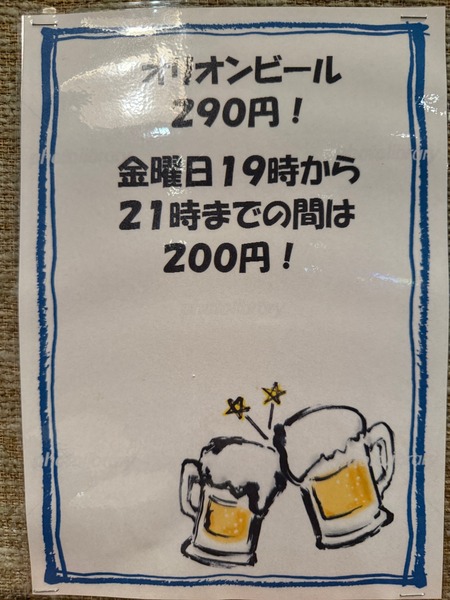 オリオンビール
290円！
金曜日19時から
21時までの間は
200円！